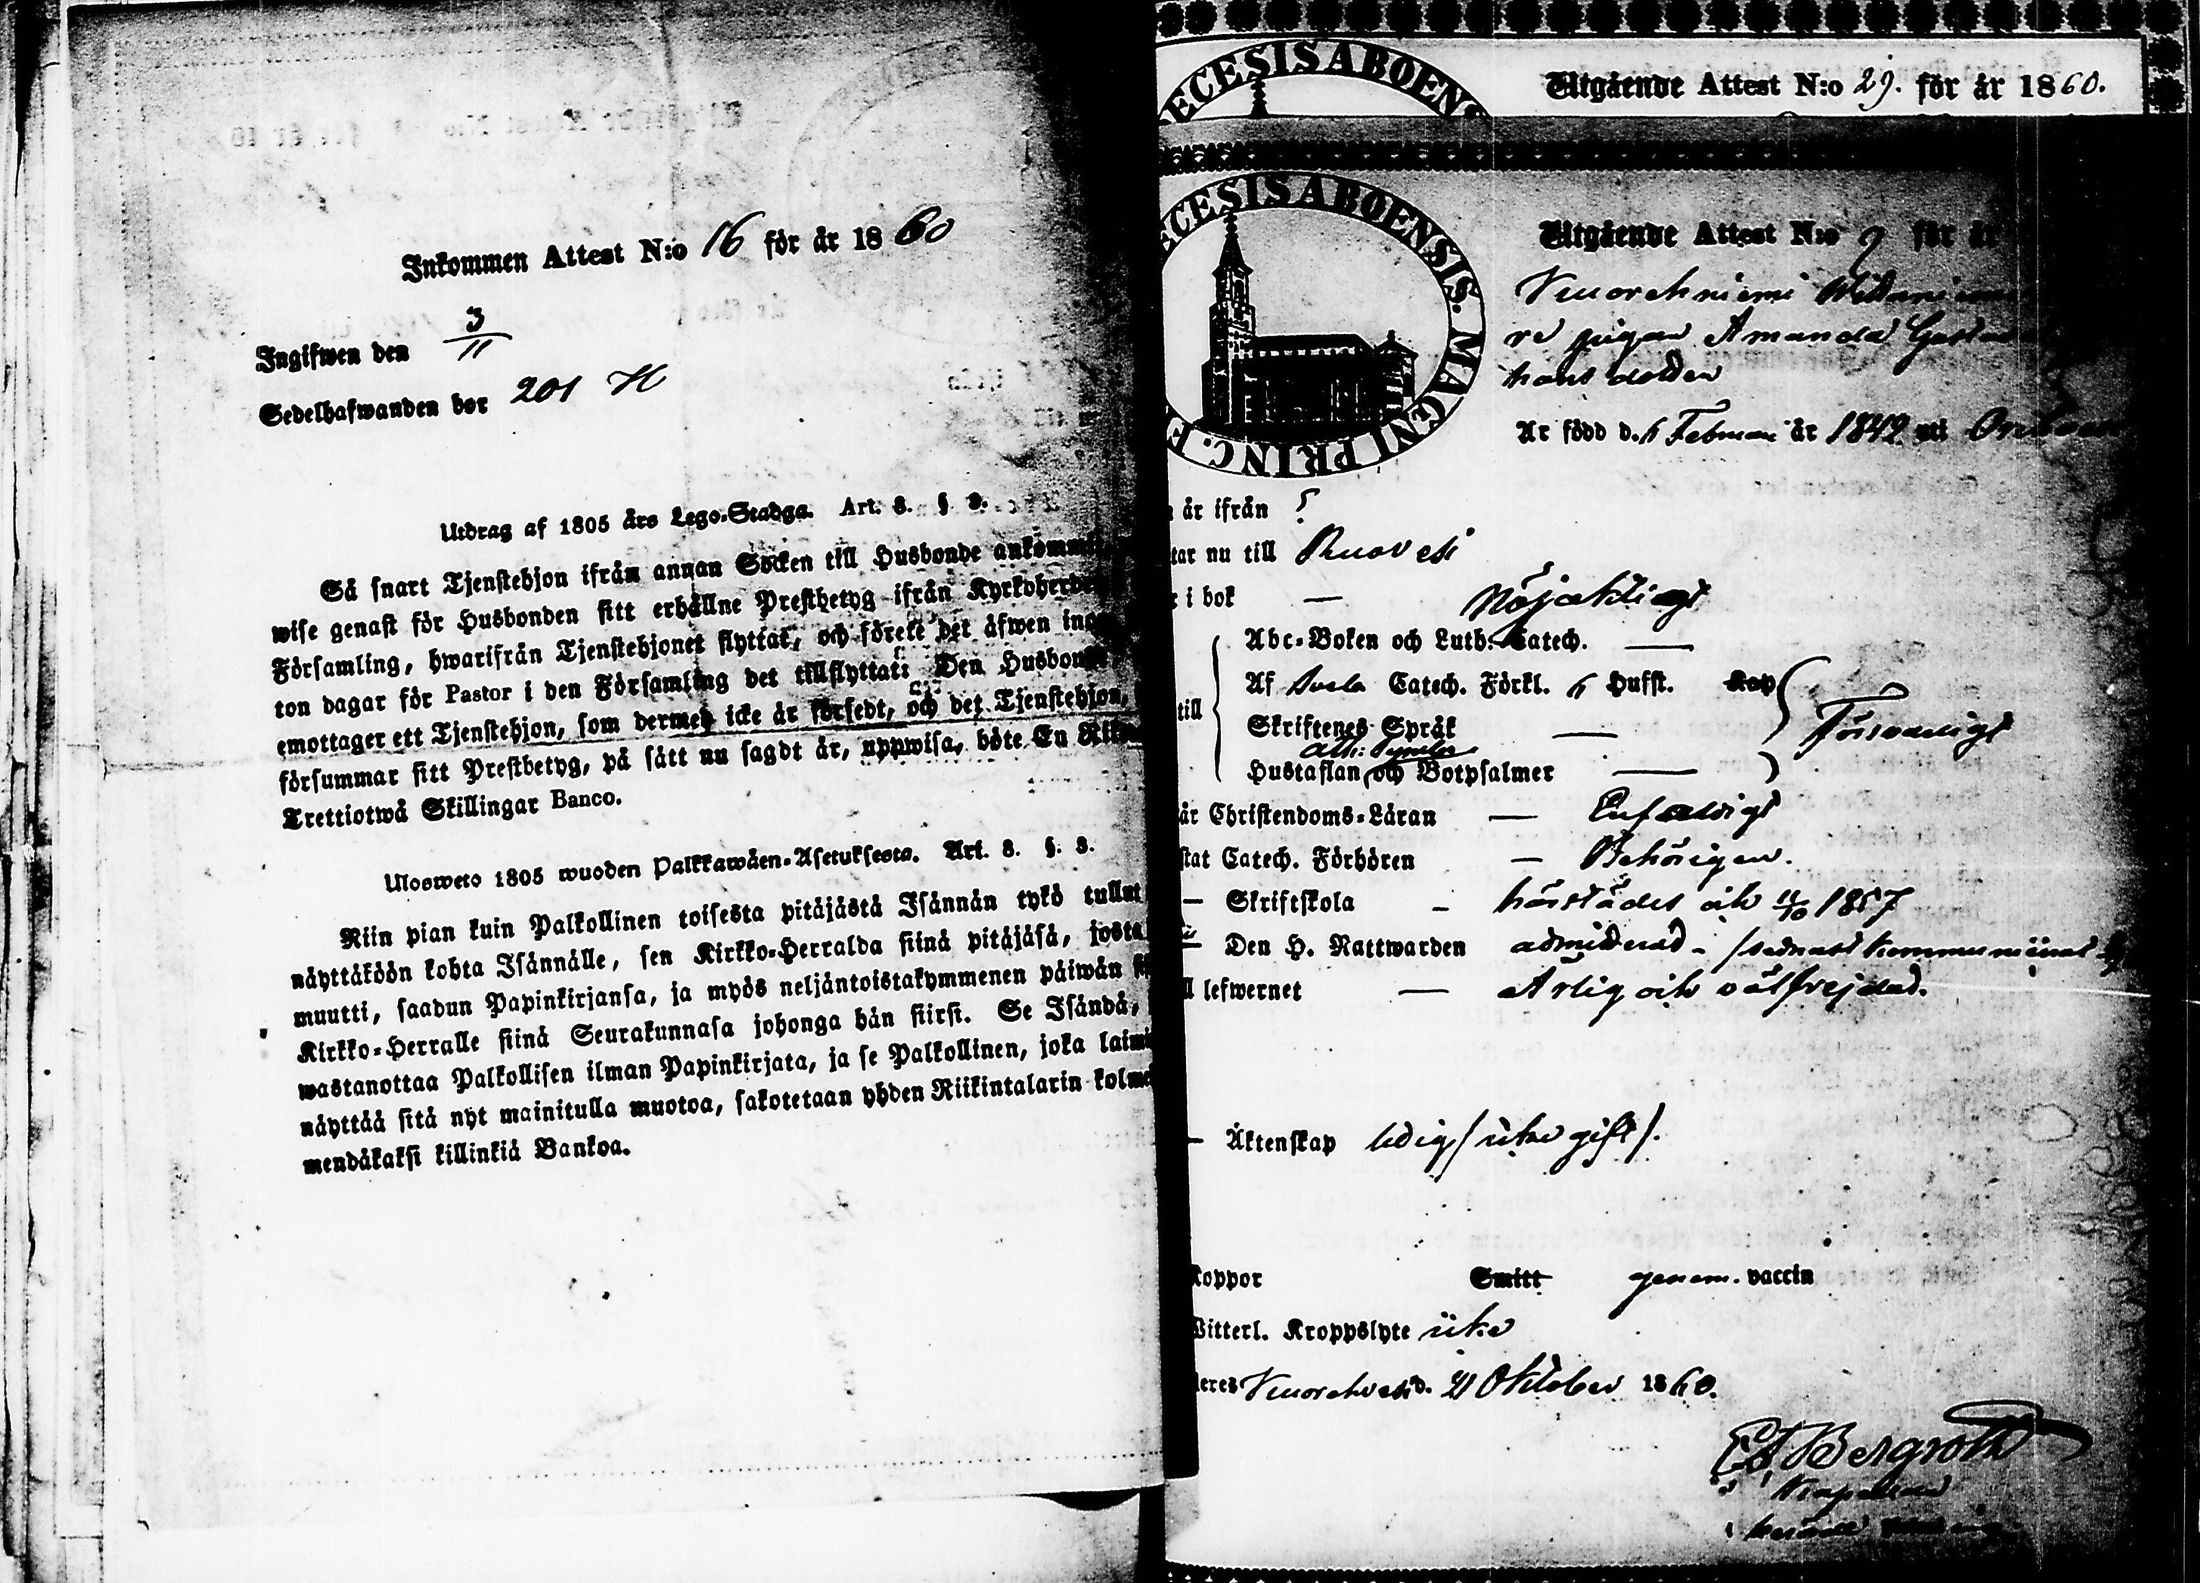 Inkommen Attest N:o 16 för år 1860
Ingifwen den 3/11
Sedelhafwanden bor 201 H
Utdrag af 1805 års Lego-Stadga. Art. 8. § 3.
Så snart Tjenstehjon ifrån annan Socken till Husbonde
wise genast för Husbonden sitt erhållne Prestbetyg ifrån
Församling, hwarifrån Tjenstehjonet flyttat, och förete det äfwen
ton dagar för Pastor i den Församling det tillflyttat: Den
emottager ett Tjenstehjon, som dermed icke är försedt, och det Tjenstehjon,
försummar sitt Prestbetyg, på sätt nu sagdt är, uppwisa, böte En
Trettiotwå Skillingar Banco.
Ulosweto 1805 wuoden Palkkawäen-Asetuksesta. Art. 8. §. 3.
Niin pian kuin Palkollinen toisesta pitäjästä Isännän tykö tullut
näyttäköön kohta Isännälle, sen Kirkko-Herralda siinä pitäjäsä, josta
muutti, saadun Papinkirjansa, ja myös neljäntoistakymmenen päiwän
Kirkko-Herralle siinä Seurakunnasa johonga hän siirsi. Se Isändä,
wastanottaa Palkollisen ilman Papinkirjata, ja se Palkollinen, joka
näyttää sitä nyt mainitulla muotoa, sakotetaan yhden Riikintalarin
mendäkaksi killinkiä Bankoa.
ECESIS ABOENS
Utgående Attest N:o 29. för år 1860.
ECESIS ABOENSIS. MAGNI PRINC. F
Utgående Attest N:o 9 för år
pigan Amanda
Är född d. 6 Februari år 1842 uti
är ifrån
tar nu till Ruovesi
i bok — Nöjaktigt
Abc-Boken och Luth. Catech. —
till Af Sveb. Catech. Förkl. 6 Hufst.
Skriftenes Språk — Försvarligt
Ath: Symbol
Hustaflan och Botpsalmer —
är Christendoms-Läran — Enfaldigt
stat Catech. Förhören — Behörigen.
— Skriftskola - härstädes och 11/10 1857
— Den H. Nattwarden admitterad -
ll lefwernet — Ärlig och välfrejdad.
— Äktenskap ledig / icke gift /.
Koppor Smitt genom. vaccin
Witterl. Kroppslyte icke
Wuorehvesi d. 21 Oktober 1860.
Bergroth